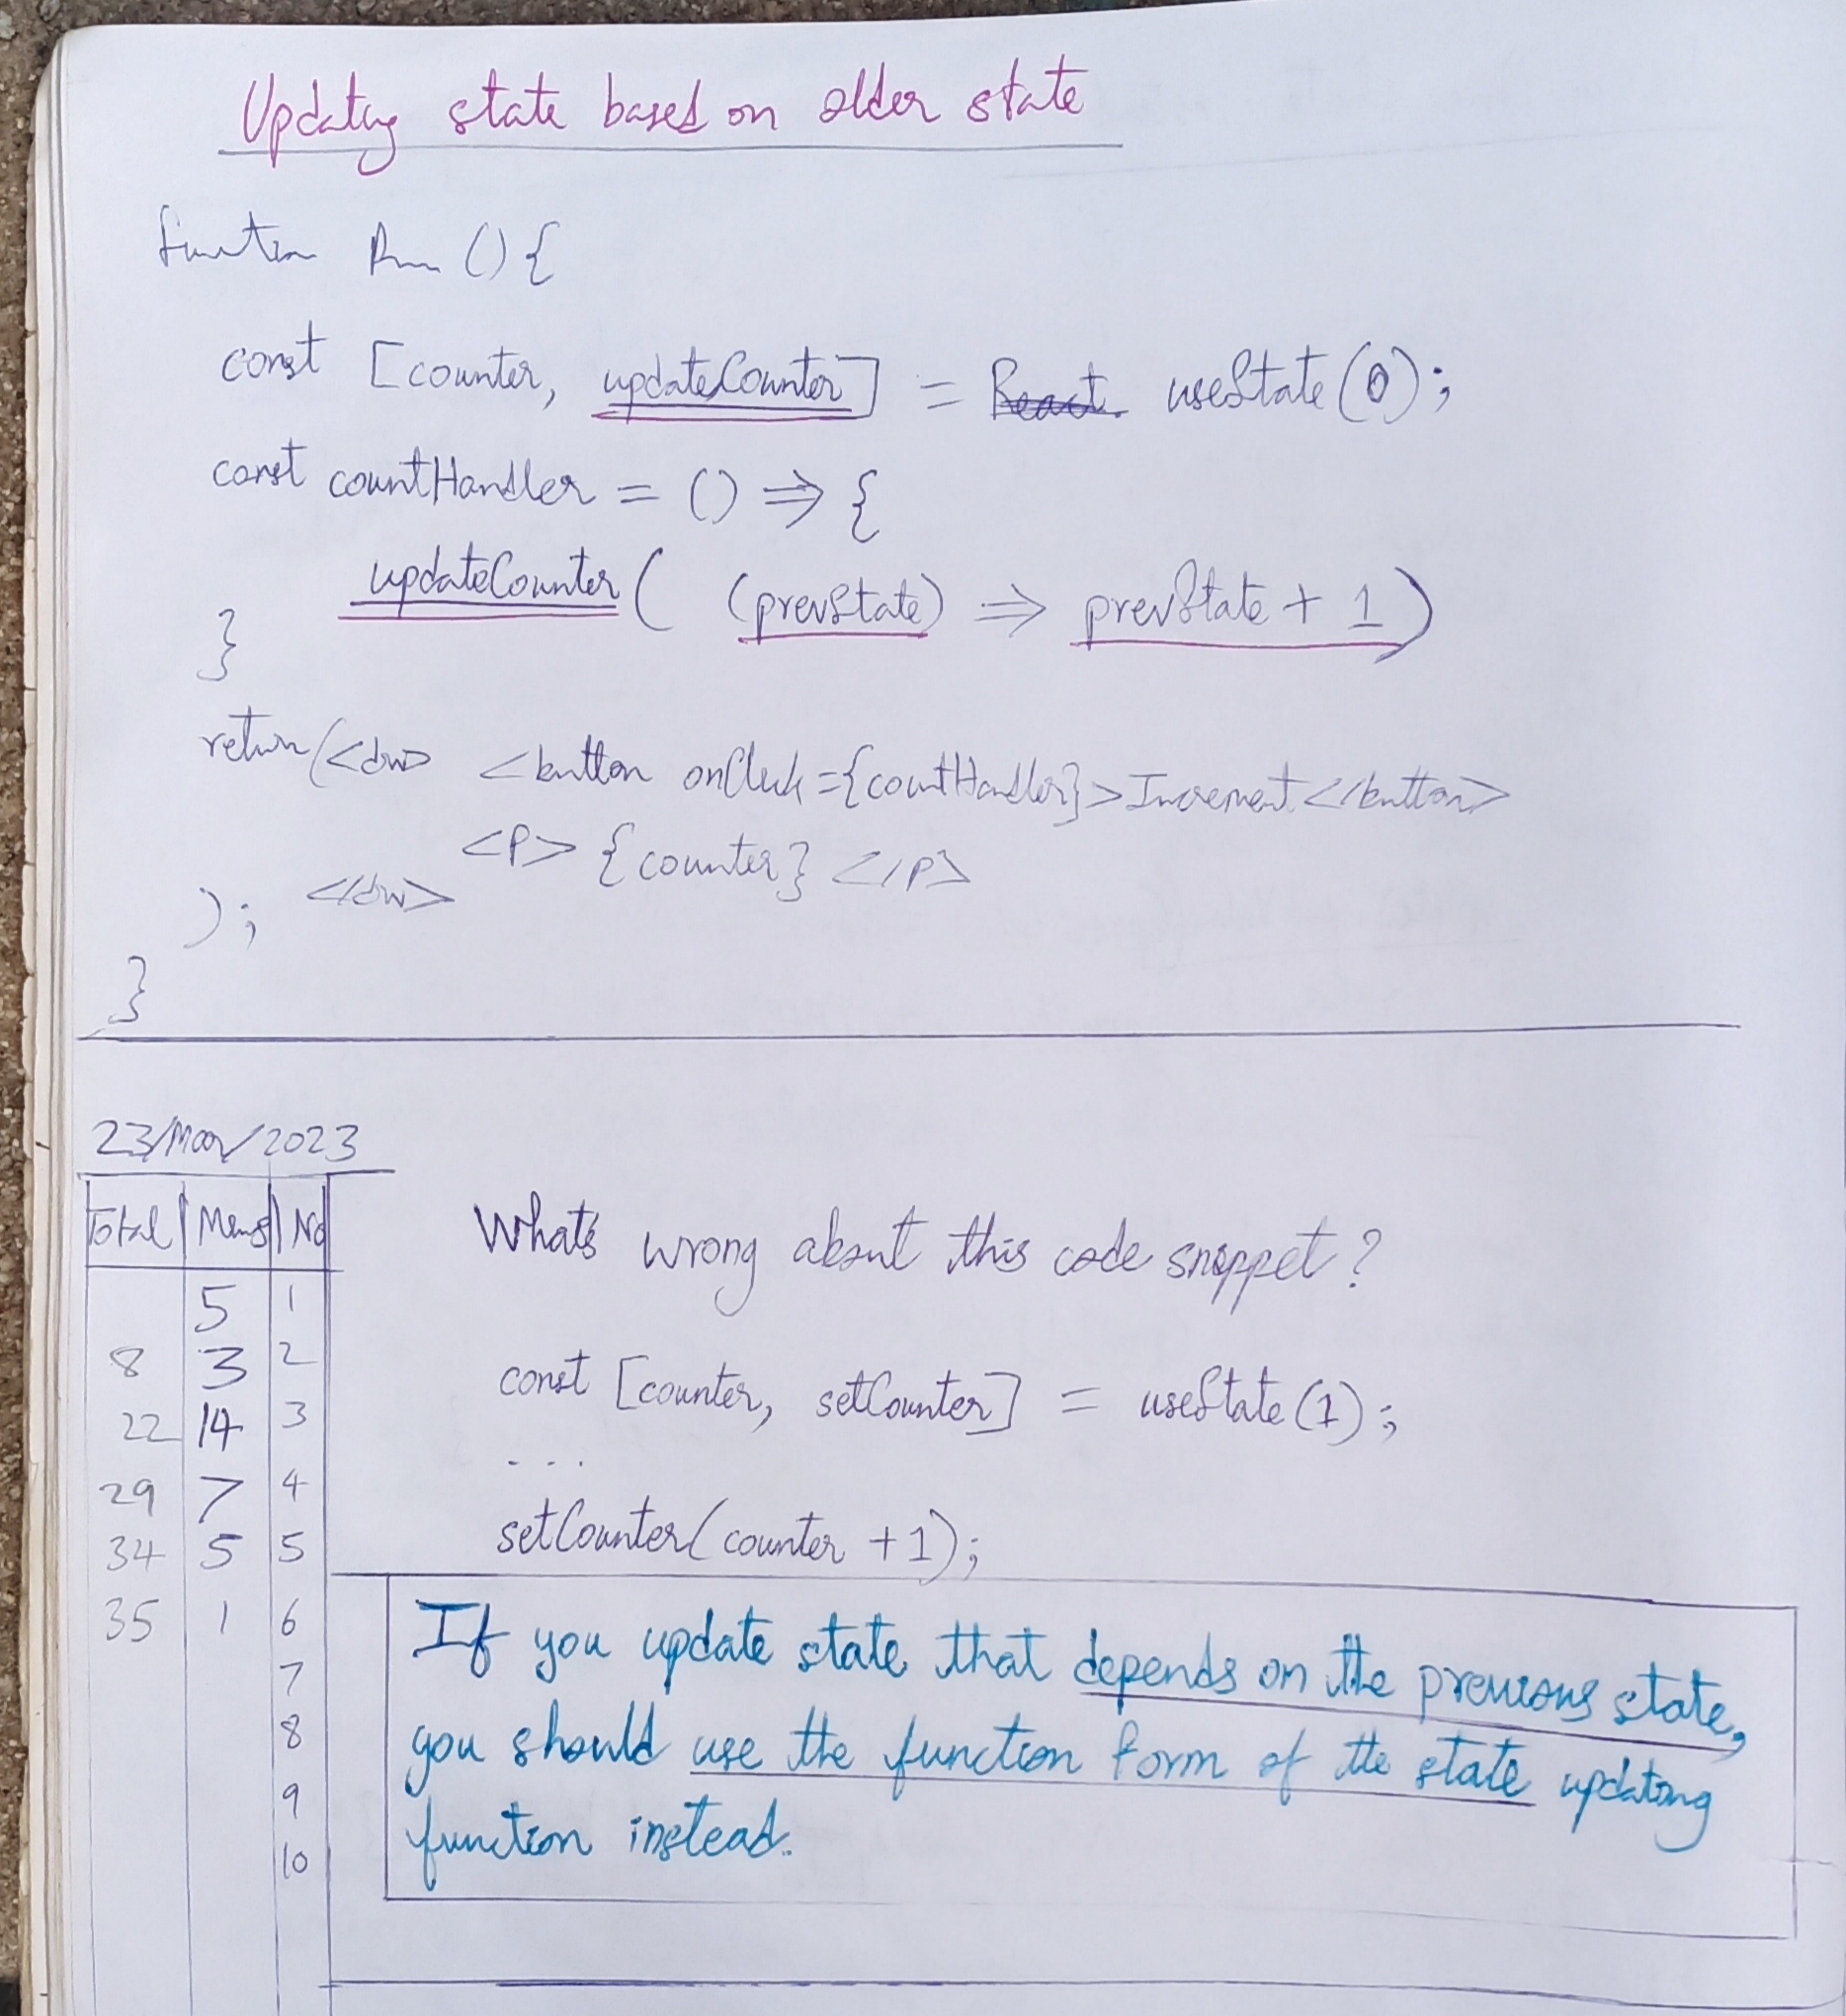 Updating state based on older state
function Run () {
const [counter, updateCounter] = React. useState(0);
const countHandler = () => {
updateCounter( (prevState) => prevState + 1)
}
return(<div> <button onClick={countHandler}>Increment</button>
<P> {counter} </P>
); </div>
}
23/Mar/2023
Total No
5 1
8 3 2
22 14 3
29 7 4
34 5 5
35 1 6
7
8
9
10
What's wrong about this code snippet?
const [counter, setCounter] = useState(1);
...
setCounter(counter +1);
If you update state that depends on the previous state,
you should use the function form of the state updating
function instead.